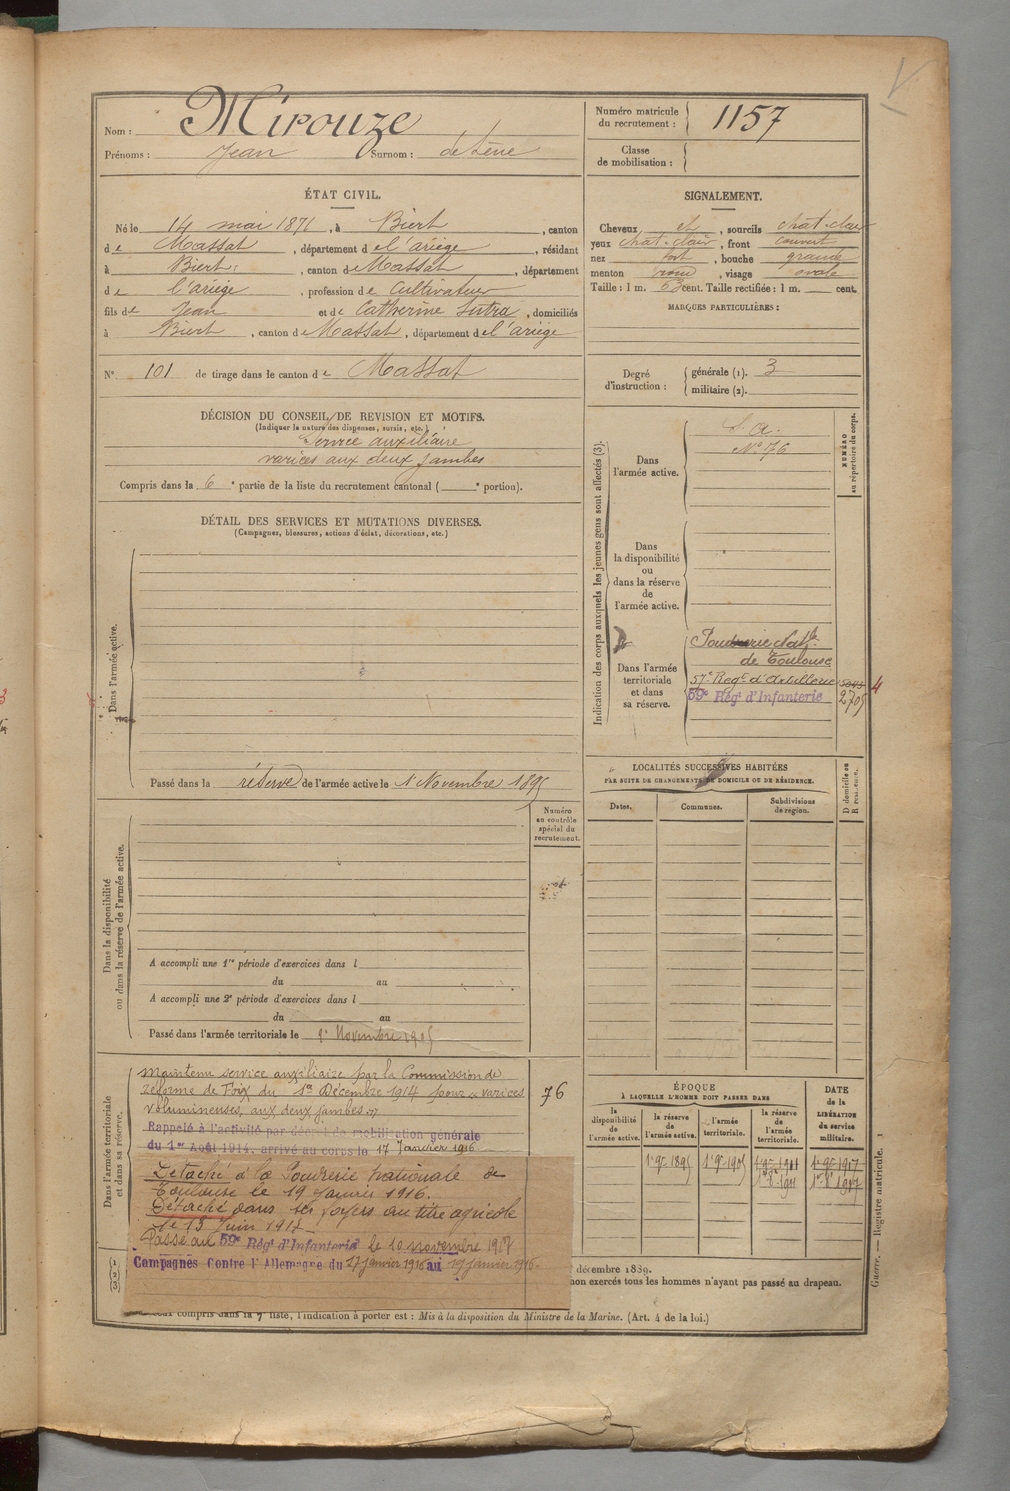 Nom : Mirouze
Prénoms : Jean Surnom : de Lène
Numéro matricule
du recrutement : 1157
Classe
de mobilisation :
ÉTAT CIVIL.
Né le 14 mai 1871, à Biert, canton
de Massat, département de l'ariège, résidant
à Biert, canton de Massat, département
de l'ariège, profession de Cultivateur
fils de Jean et de Catherine Sutra, domiciliés
à Biert, canton de Massat, département de l'ariège
N° 101 de tirage dans le canton de Massat
SIGNALEMENT.
Cheveux et, sourcils chat. clair
yeux chat. clair, front couvert
nez fort, bouche grande
menton rond, visage ovale
Taille : 1 m. 63 cent. Taille rectifiée : 1 m. cent.
MARQUES PARTICULIÈRES :
Degré
d'instruction :
générale (1). 3
militaire (2).
DÉCISION DU CONSEIL DE REVISION ET MOTIFS.
(Indiquer la nature des dispenses, sursis, etc.)
Service auxiliaire
varices aux deux jambes
Compris dans la 6e partie de la liste du recrutement cantonal ( e portion).
DÉTAIL DES SERVICES ET MUTATIONS DIVERSES.
(Campagnes, blessures, actions d'éclat, décorations, etc.)
Dans l'armée active.
Passé dans la réserve de l'armée active le 1 Novembre 1895
Indication des corps auxquels les jeunes gens sont affectés (3).
NUMÉRO
au répertoire du corps.
Dans
l'armée active.
S. A.
N° 76
Dans
la disponibilité
ou
dans la réserve
de
l'armée active.
Dans l'armée
territoriale
et dans
sa réserve.
Poudrerie Natle
de Toulouse
57e Regt d'Artillerie
59e Régt d'Infanterie
2705
4
LOCALITÉS SUCCESSIVES HABITÉES
PAR SUITE DE CHANGEMENTS DE DOMICILE OU DE RÉSIDENCE.
Dates.
Communes.
Subdivisions
de région.
D domicile ou
R résidence.
Numéro
au contrôle
spécial du
recrutement.
Dans la disponibilité
ou dans la réserve de l'armée active.
A accompli une 1re période d'exercices dans l
du au
A accompli une 2e période d'exercices dans l
du au
Passé dans l'armée territoriale le 1er Novembre 1905
Dans l'armée territoriale
et dans sa réserve.
Maintenu service auxiliaire par la Commission de
réforme de Foix du 1er Décembre 1914 pour "varices
volumineuses, aux deux jambes"
76
Rappelé à l'activité par décret de mobilisation générale
du 1er Août 1914, arrivé au corps le 17 Janvier 1916
Détaché à la Poudrerie Nationale de
Toulouse le 19 Janvier 1916.
Détaché dans ses foyers au titre agricole
le 13 Juin 1917
Passé au 59e Régt d'Infanterie le 10 novembre 1917
Campagnes Contre l'Allemagne du 17 janvier 1916 au 19 janvier 1916.
ÉPOQUE
À LAQUELLE L'HOMME DOIT PASSER DANS
la
disponibilité
de
l'armée active.
la réserve
de
l'armée active.
l'armée
territoriale.
la réserve
de
l'armée
territoriale.
DATE
de la
LIBÉRATION
du service
militaire.
1er 9e 1895 1er 9e 1905 1er 9e 1911 1er 9e 1917
décembre 1889.
non exercés tous les hommes n'ayant pas passé au drapeau.
compris dans la 7e liste, l'indication à porter est : Mis à la disposition du Ministre de la Marine. (Art. 4 de la loi.)
Guerre. — Registre matricule. 1